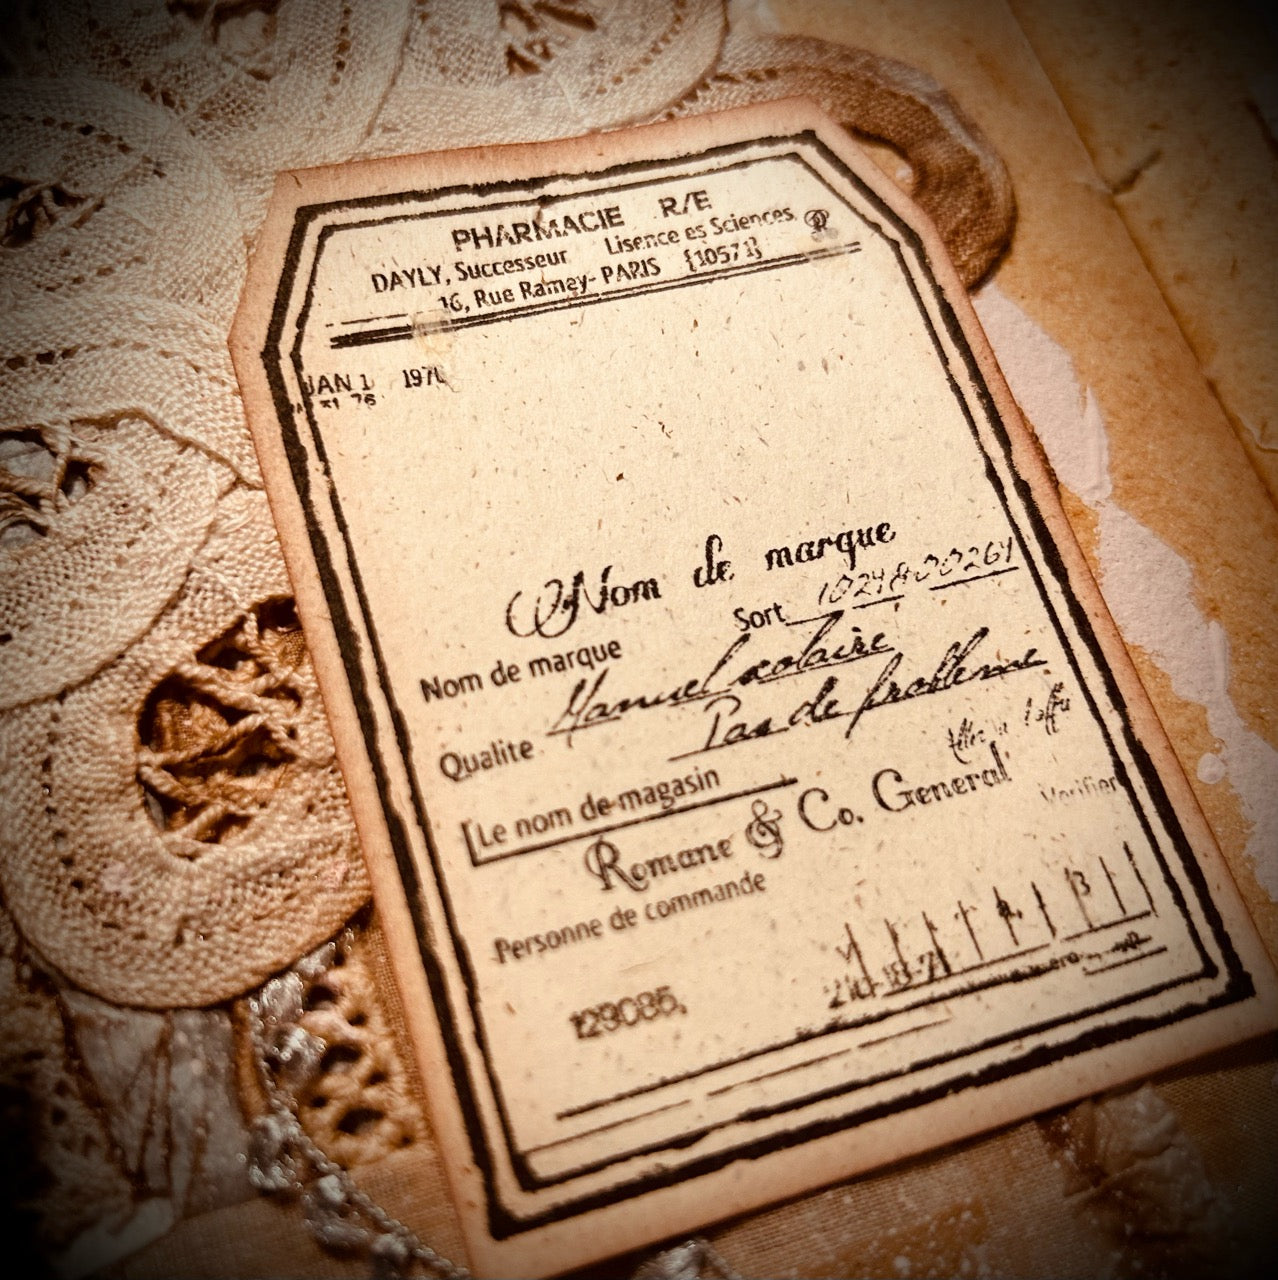 PHARMACIE R/E
DAYLY, Successeur Lisence es Sciences
16, Rue Ramey- PARIS {10571}
JAN 1 197
Nom de marque
Sort 1024A00264
Nom de marque
Manuel scolaire
Qualite Pas de problème
Le nom de magasin
Romane & Co. General
Verifier
Personne de commande
123085,